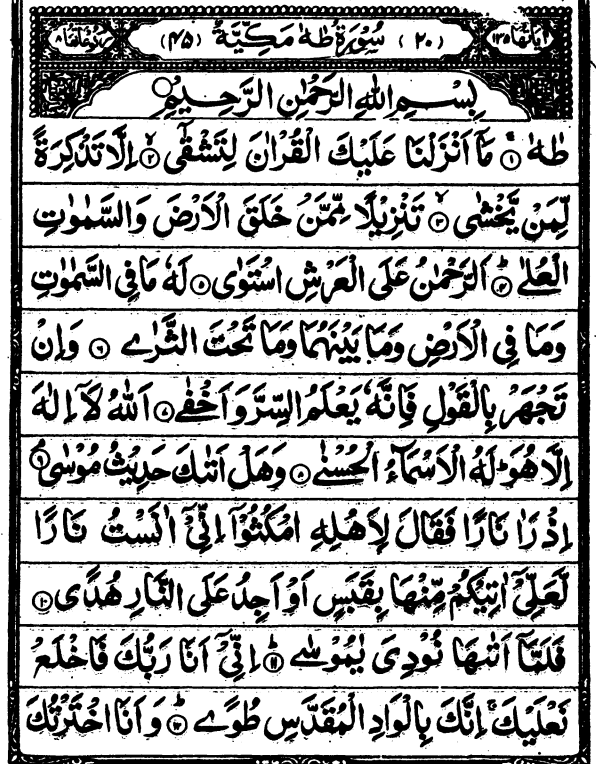 آياتها ١٣٥ (٢٠) سُوْرَةُ طٰهٰ مَكِّيَّةٌ (٤٥) ركوعاتها ٨
بِسْمِ اللهِ الرَّحْمٰنِ الرَّحِيْمِ
طٰهٰ ۚ ﴿١﴾ مَآ اَنْزَلْنَا عَلَيْكَ الْقُرْاٰنَ لِتَشْقٰٓى ﴿٢﴾ اِلَّا تَذْكِرَةً
لِّمَنْ يَّخْشٰى ﴿٣﴾ تَنْزِيْلًا مِّمَّنْ خَلَقَ الْاَرْضَ وَالسَّمٰوٰتِ
الْعُلٰے ﴿٤﴾ اَلرَّحْمٰنُ عَلَى الْعَرْشِ اسْتَوٰى ﴿٥﴾ لَهٗ مَا فِى السَّمٰوٰتِ
وَمَا فِى الْاَرْضِ وَمَا بَيْنَهُمَا وَمَا تَحْتَ الثَّرٰے ﴿٦﴾ وَاِنْ
تَجْهَرْ بِالْقَوْلِ فَاِنَّهٗ يَعْلَمُ السِّرَّ وَاَخْفٰے ﴿٧﴾ اَللهُ لَآ اِلٰهَ
اِلَّا هُوَ ؕ لَهُ الْاَسْمَآءُ الْحُسْنٰے ﴿٨﴾ وَهَلْ اَتٰىكَ حَدِيْثُ مُوْسٰى ﴿٩﴾
اِذْ رَاٰ نَارًا فَقَالَ لِاَهْلِهِ امْكُثُوْٓا اِنِّىْٓ اٰنَسْتُ نَارًا
لَّعَلِّىْٓ اٰتِيْكُمْ مِّنْهَا بِقَبَسٍ اَوْ اَجِدُ عَلَى النَّارِ هُدًى ﴿١٠﴾
فَلَمَّآ اَتٰىهَا نُوْدِىَ يٰمُوْسٰے ﴿١١﴾ اِنِّىْٓ اَنَا رَبُّكَ فَاخْلَعْ
نَعْلَيْكَ ۚ اِنَّكَ بِالْوَادِ الْمُقَدَّسِ طُوًے ﴿١٢﴾ وَاَنَا اخْتَرْتُكَ